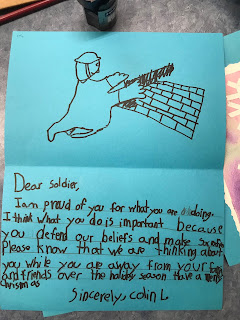 Dear soldier,
I am proud of you for what you are doing.
I think what you do is important because
you defend our beliefs and make
Please know that we are thinking about
you while you are away from your
and friends over the holiday season Have a merry
christmas
Sincerely, Colin L.